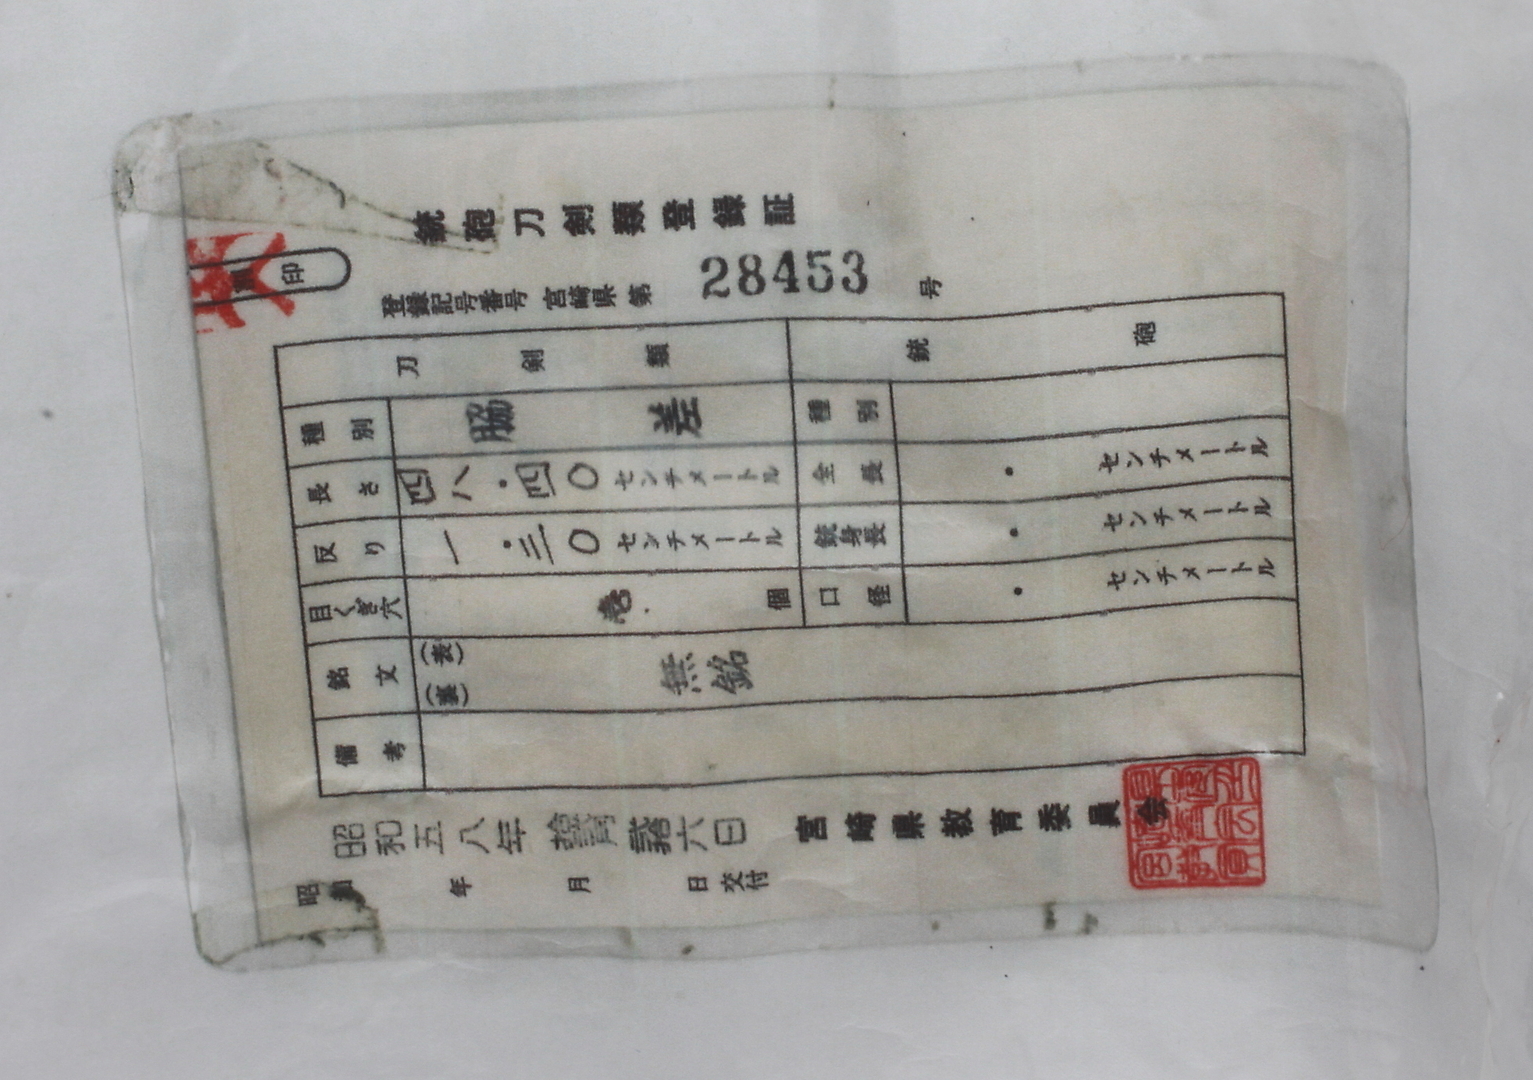 銃砲刀剣類登録証
登録記号番号 宮崎県 第 28453 号
印
刀剣類 銃砲
種別 脇差 種別
長さ 四八・四〇センチメートル 全長 ・ センチメートル
反り 一・三〇センチメートル 銃身長 ・ センチメートル
目くぎ穴 壱個 口径 ・ センチメートル
銘文 (表) 無銘
(裏)
備考
昭和五八年 拾月 弐拾六日
昭和 年 月 日交付
宮崎県教育委員会